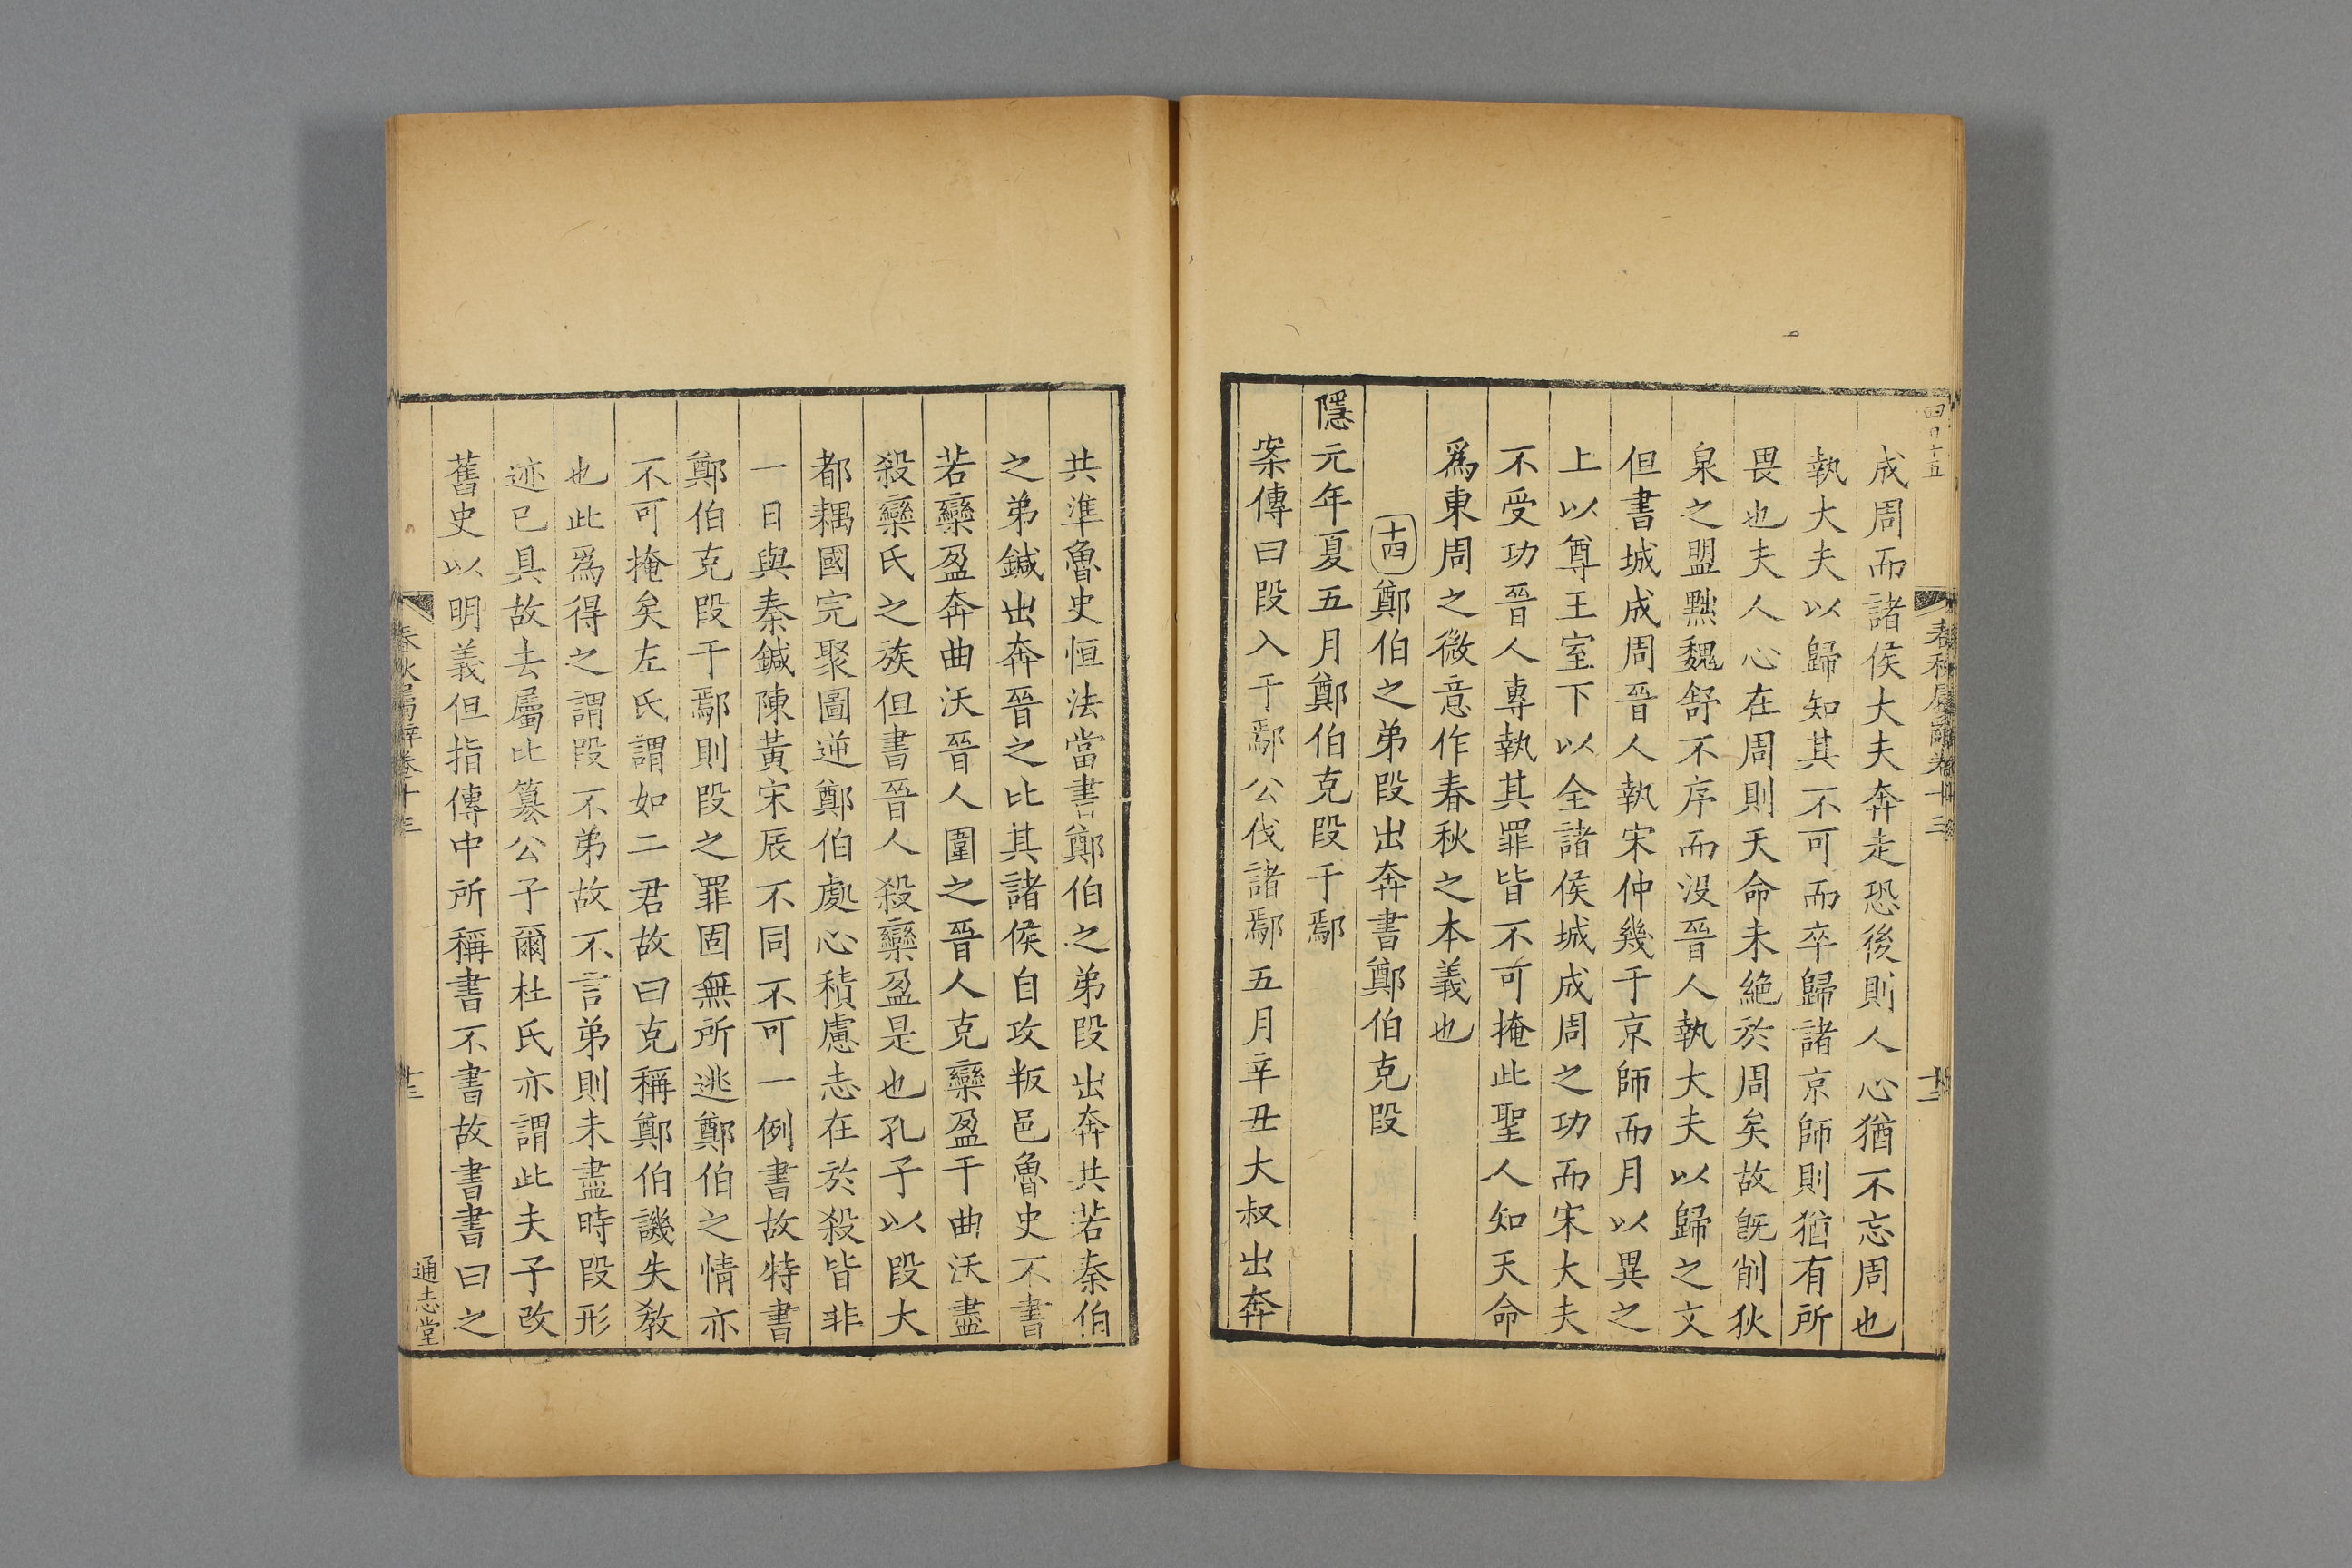 成周而諸侯大夫奔走恐後則人心猶不忘周也
執大夫以歸知其不可而卒歸諸京師則猶有所
畏也夫人心在周則天命未絕於周矣故旣削狄
泉之盟黜魏舒不序而沒晉人執大夫以歸之文
但書城成周晉人執宋仲幾于京師而月以異之
上以尊王室下以全諸侯城成周之功而宋大夫
不受功晉人專執其罪皆不可掩此聖人知天命
爲東周之微意作春秋之本義也
十四鄭伯之弟段出奔書鄭伯克段
隱元年夏五月鄭伯克段于鄢
案傳曰段入于鄢公伐諸鄢五月辛丑大叔出奔
共準魯史恒法當書鄭伯之弟段出奔共若秦伯
之弟鍼出奔晉之比其諸侯自攻叛邑魯史不書
若欒盈奔曲沃晉人圍之晉人克欒盈于曲沃盡
殺欒氏之族但書晉人殺欒盈是也孔子以段大
都耦國完聚圖逆鄭伯處心積慮志在於殺皆非
一日與秦鍼陳黃宋辰不同不可一例書故特書
鄭伯克段于鄢則段之罪固無所逃鄭伯之情亦
不可掩矣左氏謂如二君故曰克稱鄭伯譏失敎
也此爲得之謂段不弟故不言弟則未盡時段形
迹已具故去屬比簒公子爾杜氏亦謂此夫子改
舊史以明義但指傳中所稱書不書故書書曰之
春秋屬辭卷十三
十三
通志堂